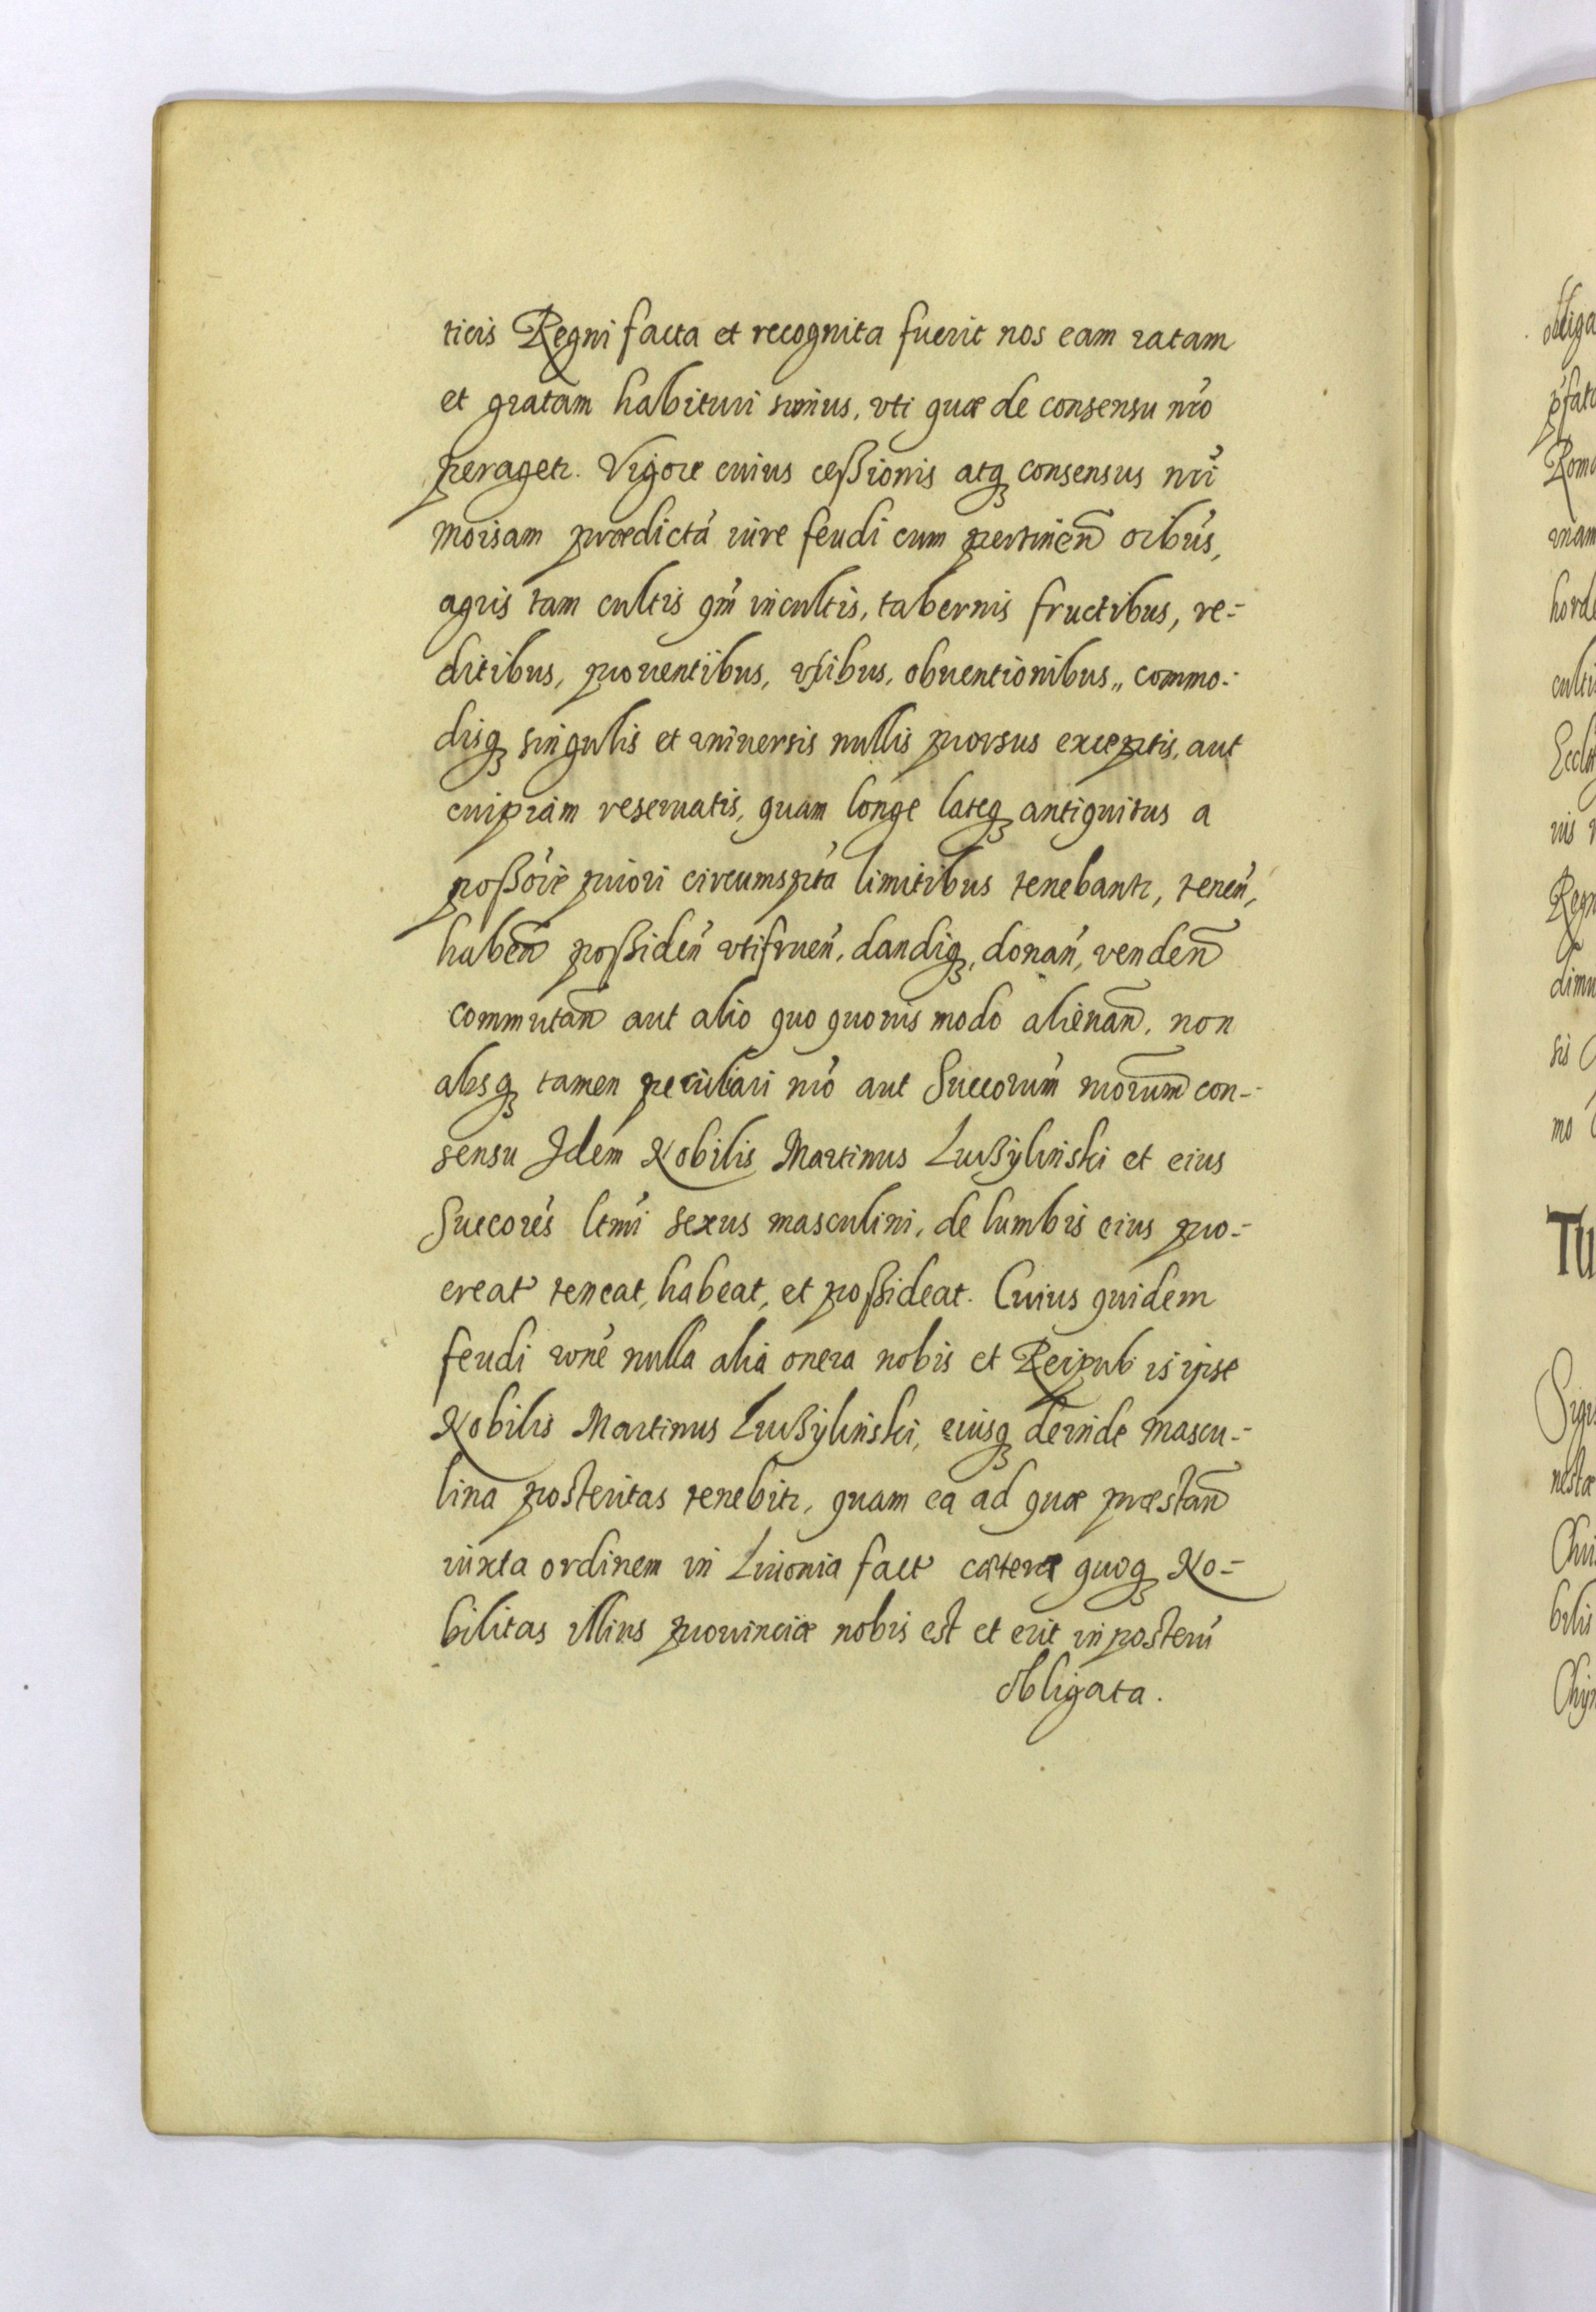 ticis Regni facta et recognita fuerit nos eam ratam
et gratam habituri simus, vti quæ de consensu nrõ
peragetr. Vigore cuius ceßionis atq₃ consensus nrĩ
moisam prædictã iure feudi cum pertineñ oĩbus,
agris tam cultis qm̃ incultis, tabernis fructibus, re-
ditibus, prouentibus, vsibus, obuentionibus,, commo-
disq₃ singulis et vniuersis nullis prorsus exceptis, aut
cuipiam reseruatis, quam longe lateq₃ antiquitus a
poßõre priori circumsp̃ta limitibus tenebantr, teneñ,
habeñ poßideñ vtifrueñ, dandiq₃, donañ, vendeñ
commutañ aut alio quoquouis modo alienañ, non
absq₃ tamen peculiari nrõ aut Succorum̃ nrõrum con-
sensu Idem Nobilis Martinus Lußÿlinski et eius
Succorẽs ltmĩ sexus masculini, de lumbis eius pro-
creat teneat, habeat, et poßideat. Cuius quidem
feudi ronẽ nulla alia onera nobis et Reipub is ipse
Nobilis Martinus Lußÿlinski, eiusq₃ deinde mascu-
lina posteritas tenebitr, quam ea ad quæ præstañ
iuxta ordinem in Liuonia fact cætera quoq₃ No-
bilitas illius prouinciæ nobis est et erit in posterũ
obligata.
obliga
p̃fat
Roma
horde
culti
Regn
dimu
sis
mo
TU
bilis